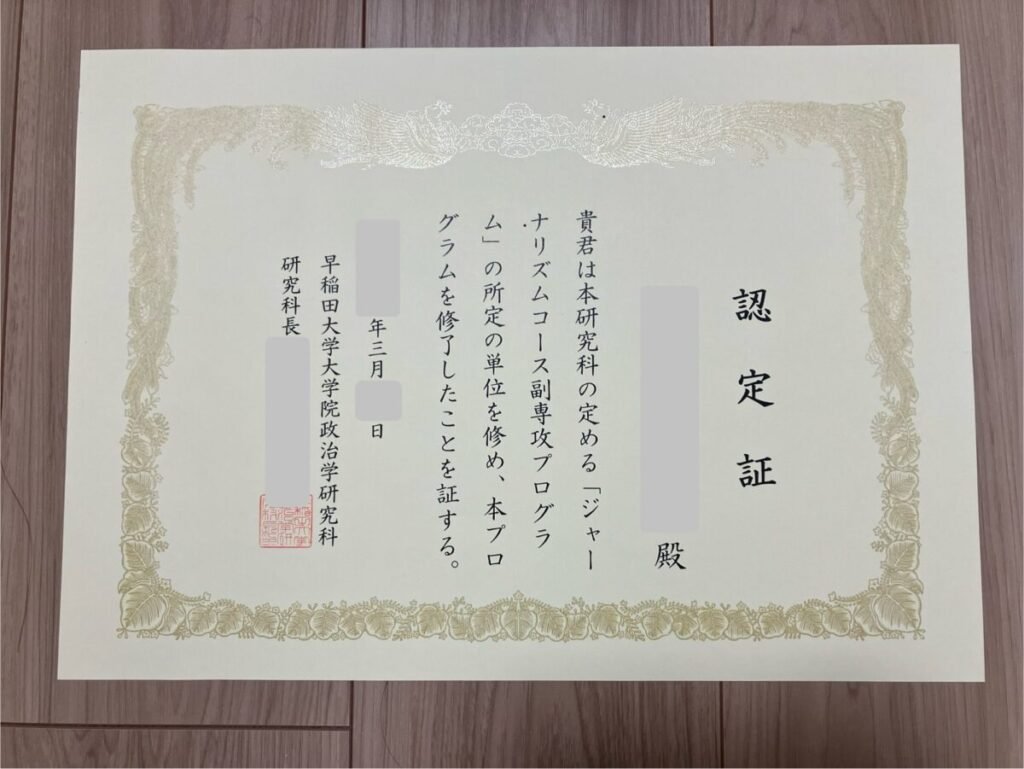 認定証
殿
貴君は本研究科の定める「ジャー
ナリズムコース副専攻プログラ
ム」の所定の単位を修め、本プロ
グラムを修了したことを証する。
年三月
日
早稲田大学大学院政治学研究科
研究科長